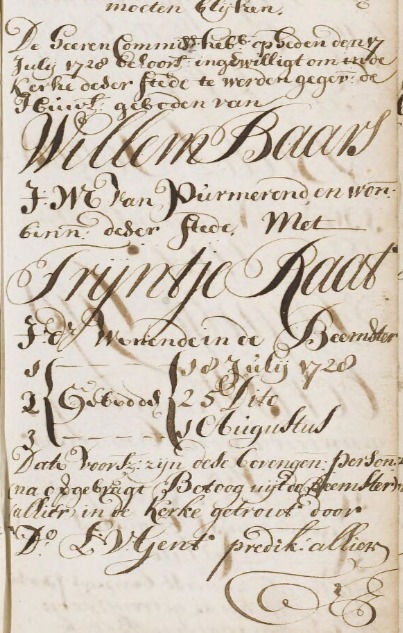 moeten blijken.
De Heeren Commiss: hebb: op heden den 17
July 1728 bevoors: ingewilligt om in de
Kerke deser stede te werden geger: de
Houwl: geboden van
Willem Baars
J:M van Purmerend en won:
binn: deser stede, Met
Trijntje Kaat
J:d: Wonende in de Beemster
1 18 July 1728
2 Geboode 25 Dito
3 1 Augustus
Dato voorsz: zijn dese bovengen: person:
(na opgebragt Betoog uijt de Beemster)
alhier in de Kerke getrout door
Do: E V Gent predik: alhier